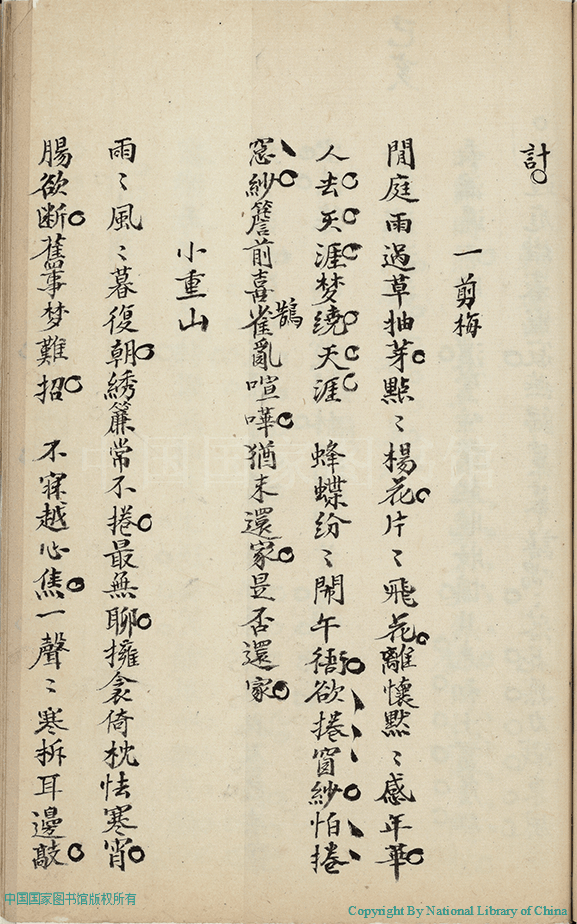 計
一剪梅
閒庭雨過草抽芽點〻楊花片〻飛花離懷黙〻感年華
人去天涯梦繞天涯　蜂蝶紛〻鬧午衙欲捲窗紗怕捲
窓紗簷前喜雀亂喧嘩猶未還家是否還家
鵲
小重山
雨〻風〻暮復朝綉簾常不捲最無聊擁衾倚枕怯寒宵
腸欲断舊事梦難招　不寐越心焦一聲〻寒拆耳邊敲
中国国家图书馆
中国国家图书馆版权所有
Copyright By National Library of China